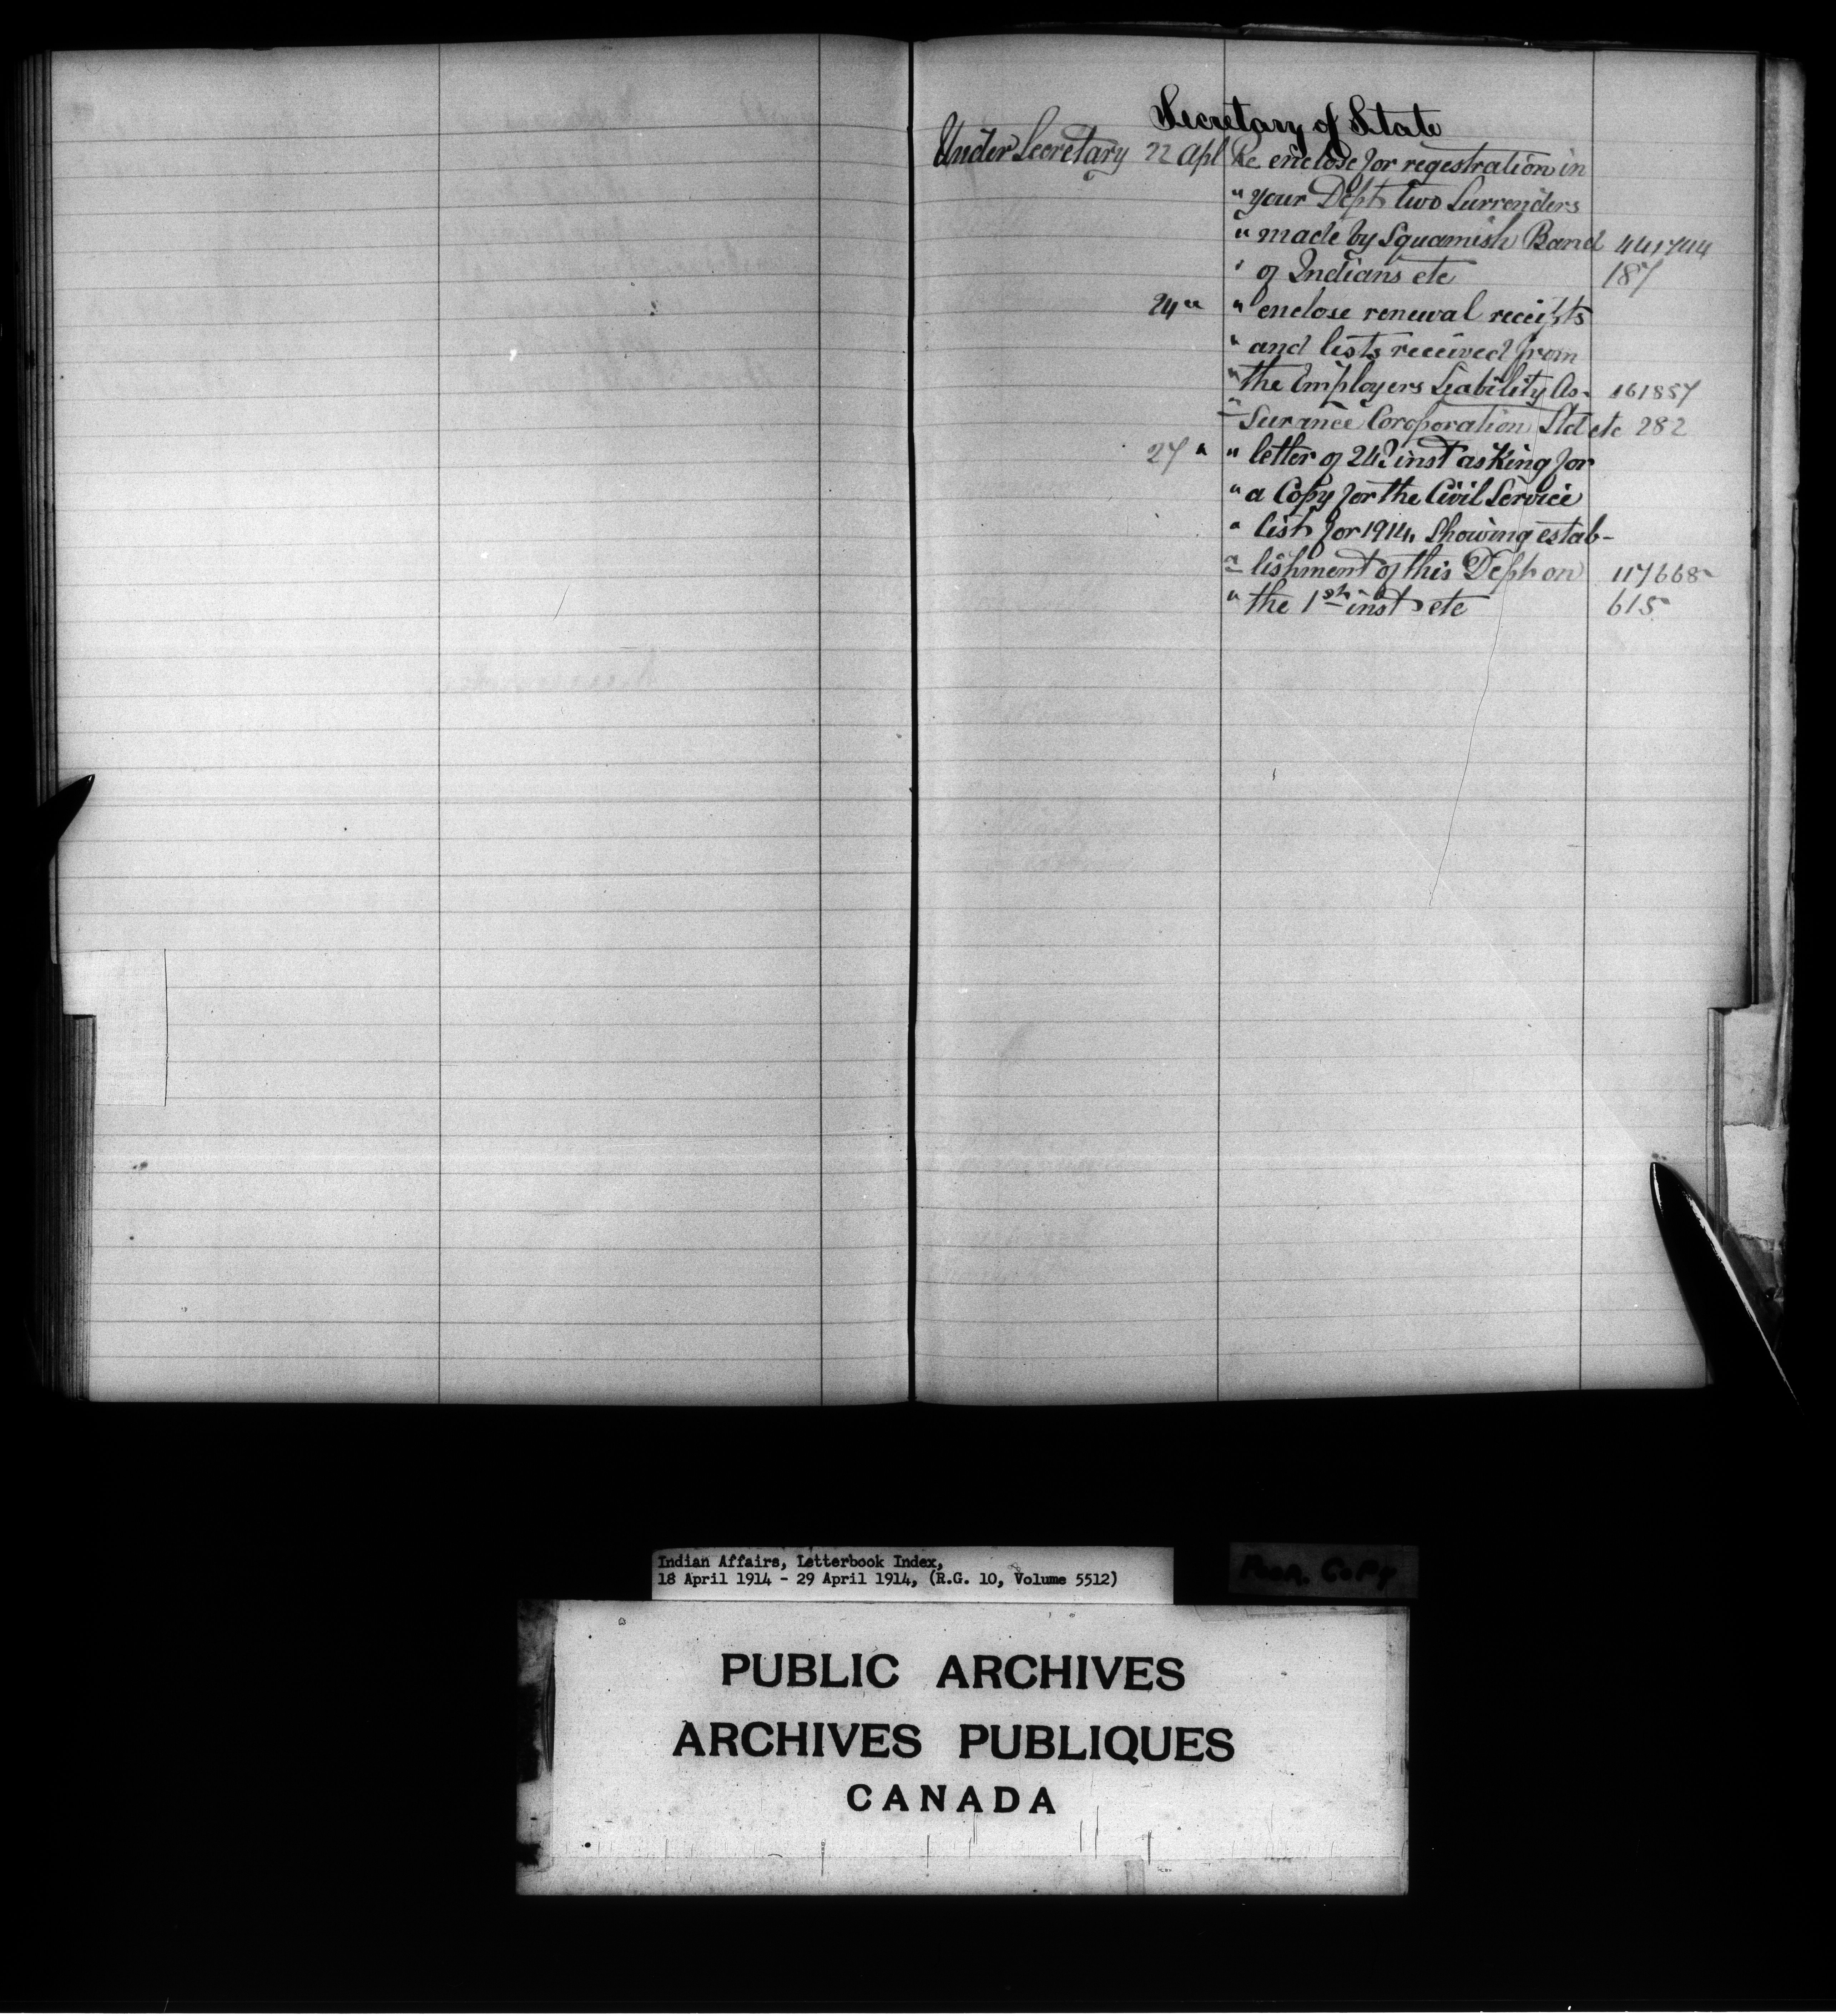 Secretary of State
Under Secretary 22 Apl Re enclose for regestration in
" your Dept two Surrenders
" made by Squamish Band 441744
" of Indians etc 187
24 " " enclose renewal receipts
" and lists received from
" the Employers Liability As- 161857
" surance Coroporation Ltd etc 282
27 " " letter of 24th inst asking for
" a Copy for the Civil Service
" list for 1914, Showing estab-
" lishment of this Dept on 117668-
" the 1st inst etc 615
Indian Affairs, Letterbook Index,
18 April 1914 - 29 April 1914, (R.G. 10, Volume 5512)
Poor Copy
PUBLIC ARCHIVES
ARCHIVES PUBLIQUES
CANADA